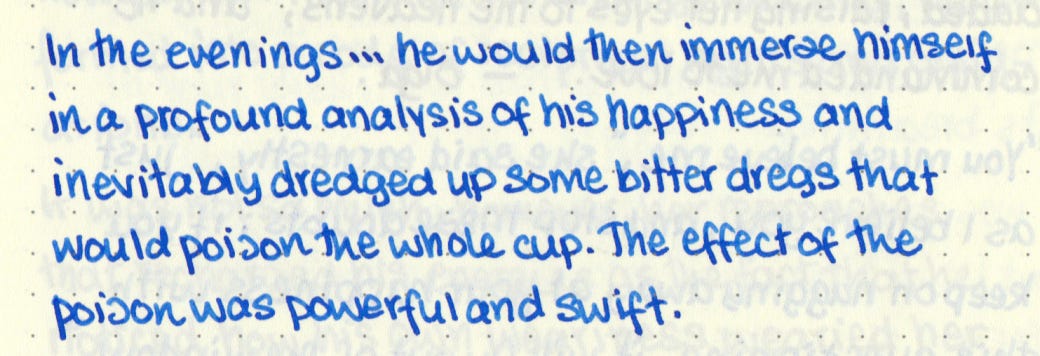 In the evenings... he would then immerse himself
in a profound analysis of his happiness and
inevitably dredged up some bitter dregs that
would poison the whole cup. The effect of the
poison was powerful and swift.